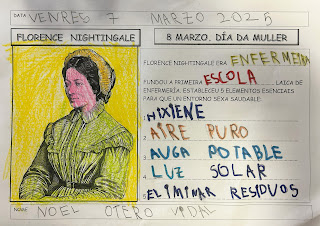 DATA VENREG 7 MARZO 2025
FLORENCE NIGHTINGALE
8 MARZO. DÍA DA MULLER
FLORENCE NIGHTINGALE ERA ENFERMEIRA
FUNDOU A PRIMEIRA ESCOLA LAICA DE
ENFERMERÍA. ESTABLECEU 5 ELEMENTOS ESENCIAIS
PARA QUE UN ENTORNO SEXA SAUDABLE:
1. HIXIENE
2. AIRE PURO
3. AUGA POTABLE
4. LUZ SOLAR
5. ELIMINAR RESIDUOS
NOME: NOEL OTERO VIDAL